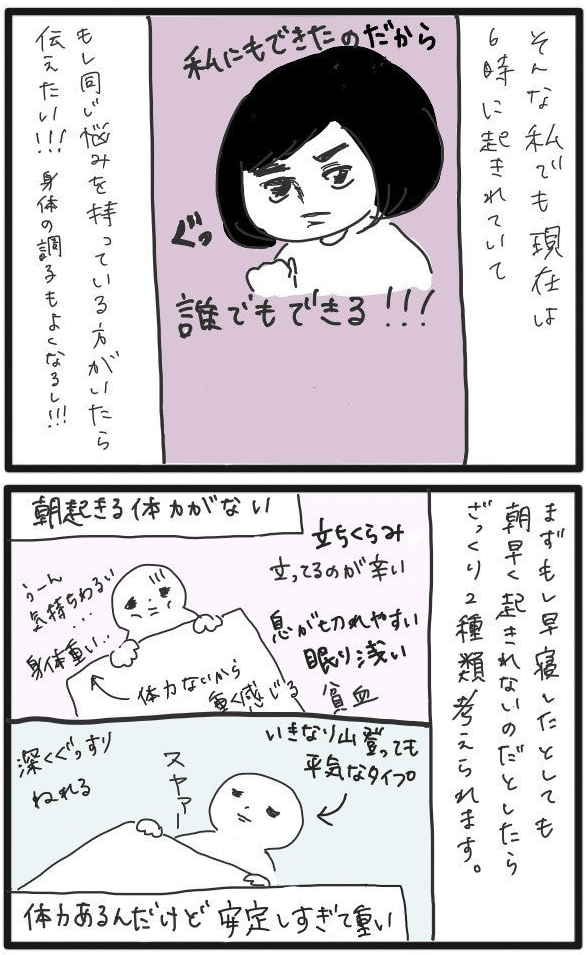 そんな私でも現在は
6時に起きれていて
私にもできたのだから
ぐっ
誰でもできる!!!
もし同じ悩みを持っている方がいたら
伝えたい!!! 身体の調子もよくなるし!!!
まずもし早寝したとしても
朝早く起きれないのだとしたら
ざっくり2種類考えられます。
朝起きる体力がない
立ちくらみ
立ってるのが辛い
息が切れやすい
眠り浅い
貧血
うーん
気持ちわるい
...
身体重い..
体力ないから
重く感じる
いきなり山登っても
平気なタイプ。
スヤァー
深くぐっすり
ねれる
体力あるんだけど安定しすぎて重い